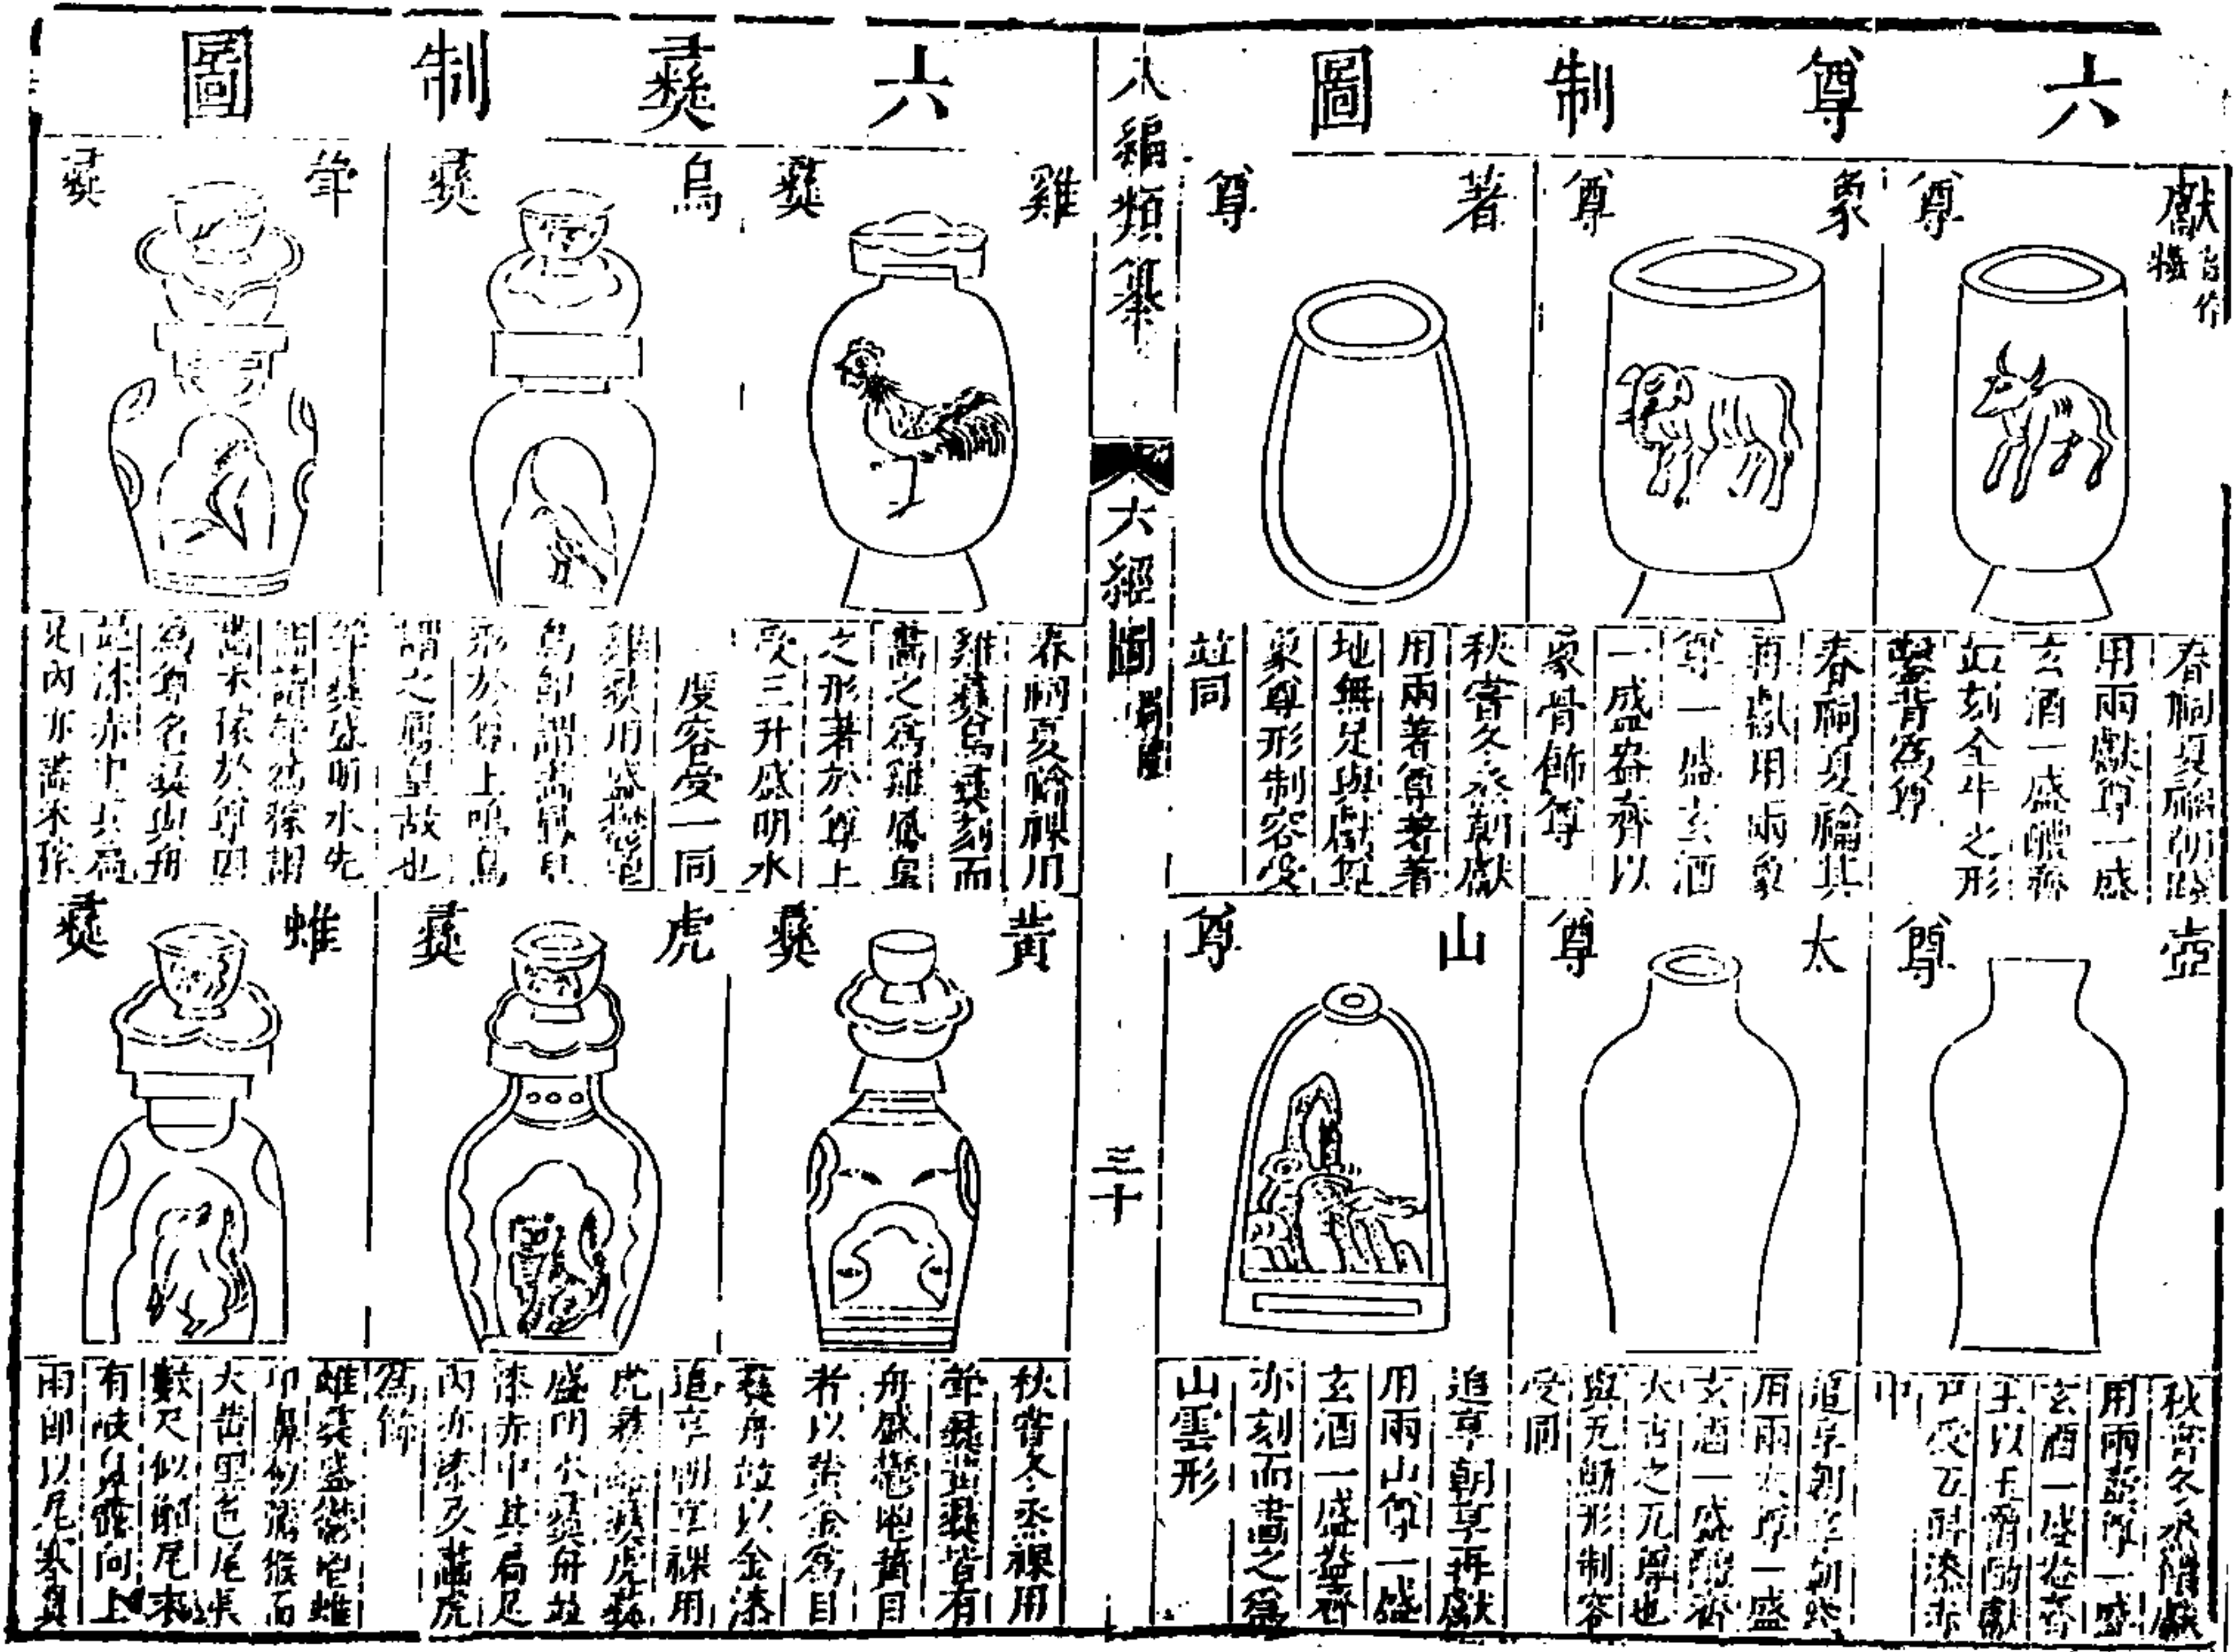 六尊制圖
獻尊
古作犧
春祠夏禴朝踐
用兩獻尊一盛
玄酒一盛醴齊
竝刻全牛之形
鑿背為尊
象尊
春祠夏禴其
再獻用兩象
尊一盛玄酒
一盛盎齊以
象骨飾尊
著尊
秋嘗冬烝朝獻
用兩著尊著著
地無足與獻尊
象尊形制容受
竝同
壺尊
秋嘗冬烝饋獻
用兩壺尊一盛
玄酒一盛盎齊
王以玉爵酌獻
尸受五斗漆赤
中
太尊
追享朝享朝踐
用兩太尊一盛
玄酒一盛醴齊
太古之瓦尊也
與瓦甒形制容
受同
山尊
追享朝享再獻
用兩山尊一盛
玄酒一盛盎齊
亦刻而畫之為
山雲形
八編類纂
六經圖
三十
六彝制圖
雞彝
春祠夏禴祼用
雞彝鳥彝刻而
畫之為雞鳳凰
之形著於尊上
受三升盛明水
度容受一同
鳥彝
雞彝用盛鬱鬯
鳥即謂畫鳳凰
形於尊上鳴鳥
謂之鳳皇故也
斝彝
斝彝盛明水先
畫禾稼於尊因
為尊名彝與舟
竝漆赤中其局
足內亦畫禾稼
黃彝
秋嘗冬烝祼用
斝彝黃彝皆有
舟盛鬱鬯黃目
者以黃金為目
彝舟故以金漆
虎彝
追享朝享祼用
虎彝蜼彝虎彝
盛明水彝舟竝
漆赤中其局足
內亦漆及畫虎
為飾
蜼彝
蜼彝盛鬱鬯蜼
卬鼻似獼猴而
大黃黑色尾長
數尺似獺尾末
有岐鼻露向上
雨即以尾塞鼻